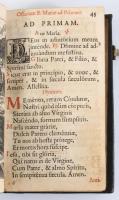 Officium B. Mariæ ad Primam. 45
AD PRIMAM.
Ave Maria.
Deus in adjutorium meum
intende. ℟. Domine ad ad-
juvandum me festina.
Gloria Patri, & Filio, &
Spiritui sancto.
Sicut erat in principio, & nunc, &
semper, & in sæcula sæculorum,
Amen. Alleluia.
Hymnus.
Memento, rerum Conditor,
Nostri quod olim corporis,
Sacrata ab alvo Virginis
Nascendo, formam sumpseris.
Maria mater gratiæ,
Dulcis Parens clementiæ,
Tu nos ab hoste protege,
Et mortis hora suscipe.
Jesu, tibi sit gloria,
Qui natus es de Virgine,
Cum Patre, & almo Spiritu,
In sempiterna sæcula. Amen.